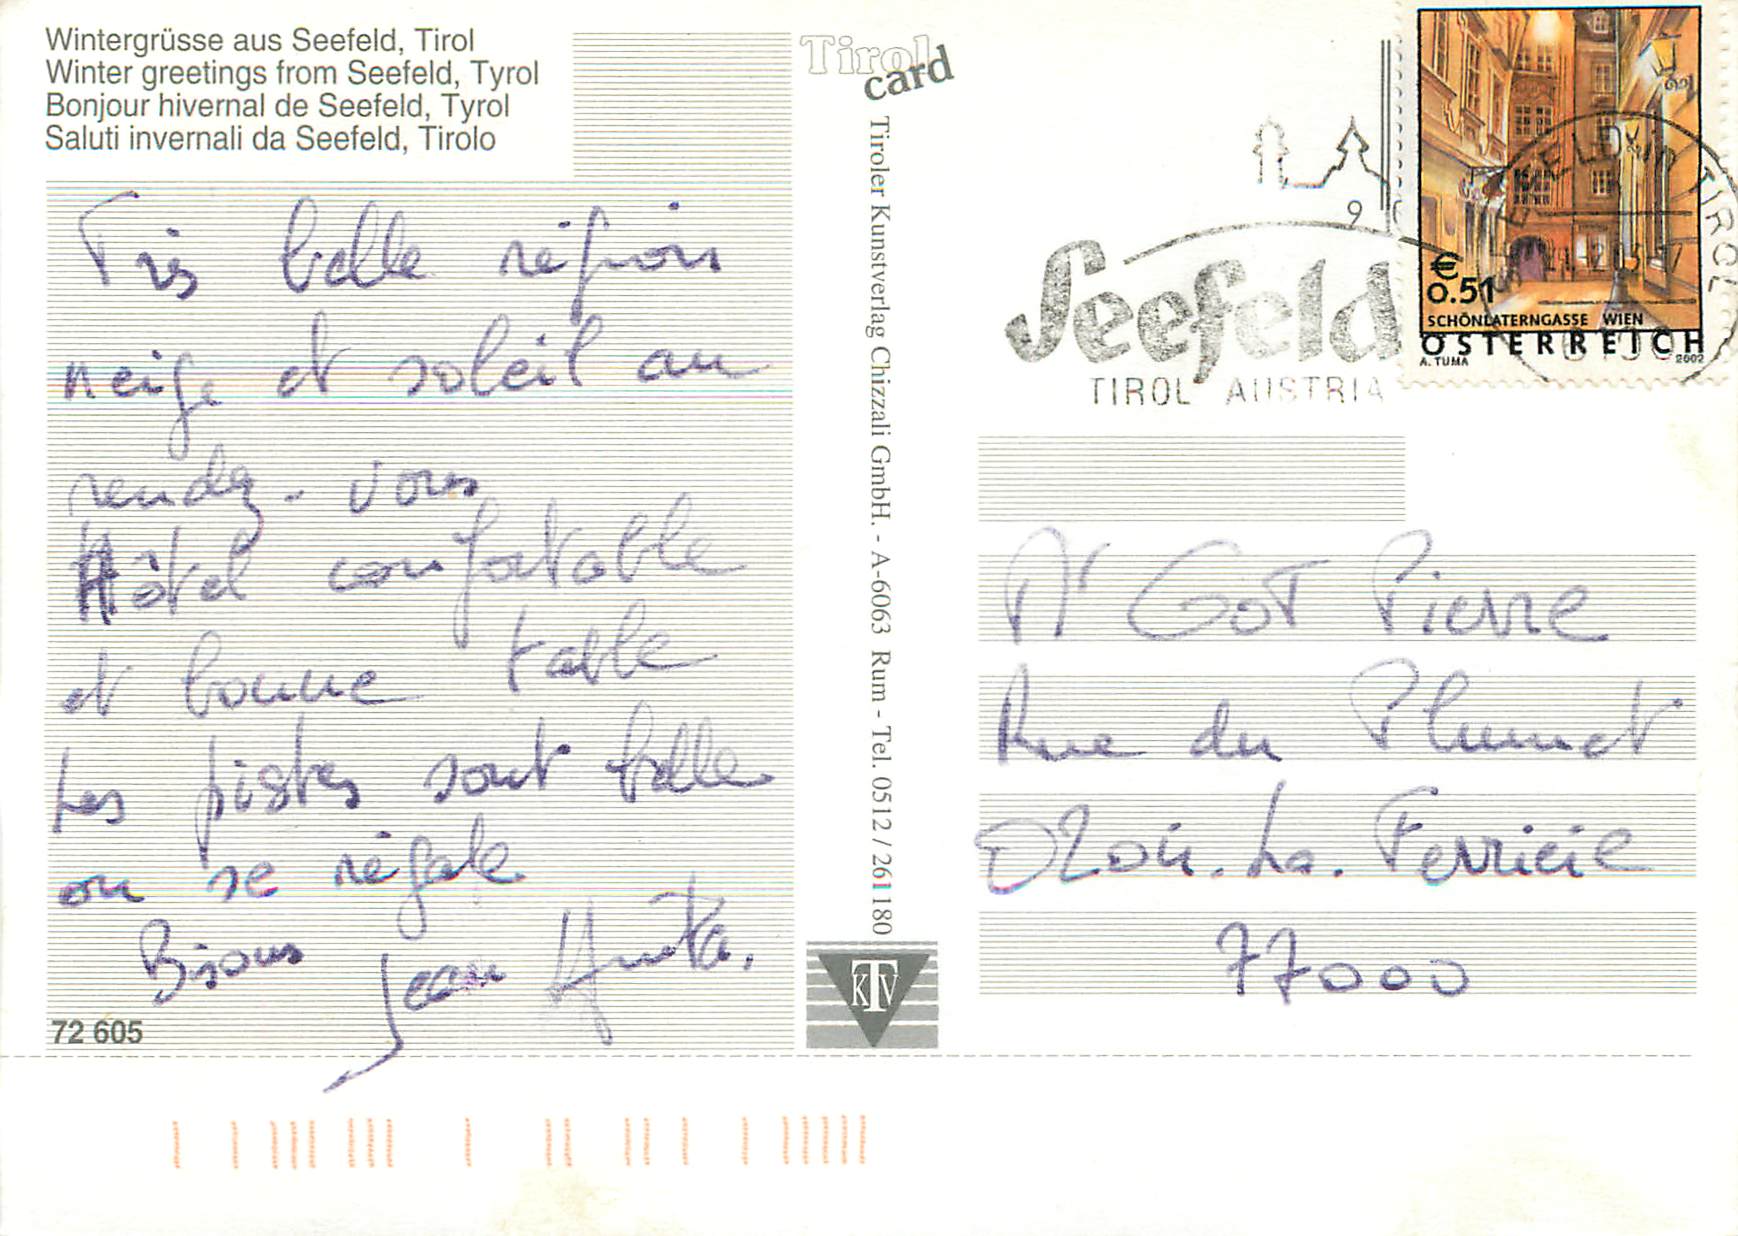 Wintergrüsse aus Seefeld, Tirol
Winter greetings from Seefeld, Tyrol
Bonjour hivernal de Seefeld, Tyrol
Saluti invernali da Seefeld, Tirolo
Très belle région
neige et soleil au
rendez-vous
Hôtel confortable
et bonne table
Les pistes sont belles
on se régale
Bisous Jean Anita.
72 605
Tirol card
Tiroler Kunstverlag Chizzali GmbH. - A-6063 Rum - Tel. 0512 / 261180
KTV
9
Seefeld
TIROL AUSTRIA
€
0.51
SCHÖNLATERNGASSE WIEN
ÖSTERREICH
A. TUMA 2002
TIROL
Mr GOT Pierre
Rue du Plumet
Ozoir. La. Ferriere
77000